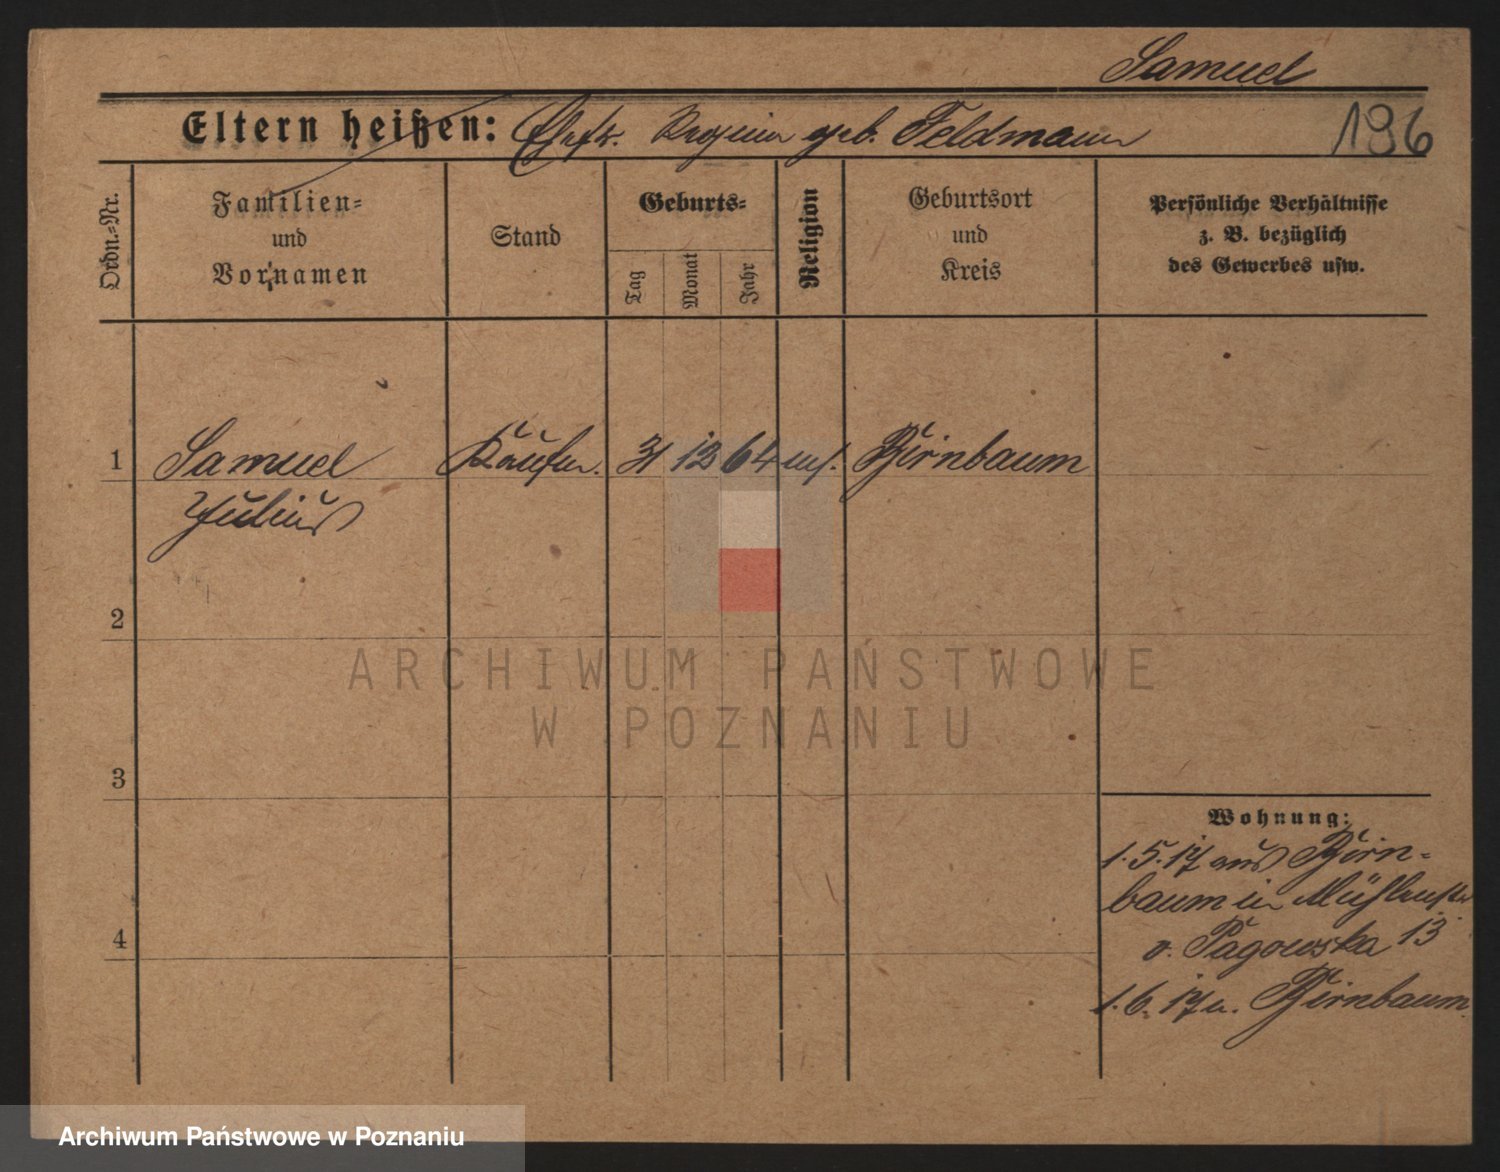 Samuel
Eltern heißen: Ehefr. geb. Feldmann
196
Ordn.-Nr.
Familien-
und
Vornamen
Stand
Geburts-
Tag
Monat
Jahr
Religion
Geburtsort
und
Kreis
Persönliche Verhältnisse
z. B. bezüglich
des Gewerbes usw.
1 Samuel Kaufm. 31 12 64 mos. Birnbaum
Julius
2
ARCHIWUM PAŃSTWOWE
W POZNANIU
3
Wohnung:
1.5.17 aus Birn-
baum in Mühlenstr
v. Pagowska 13
4
1.6.17 n. Birnbaum
Archiwum Państwowe w Poznaniu